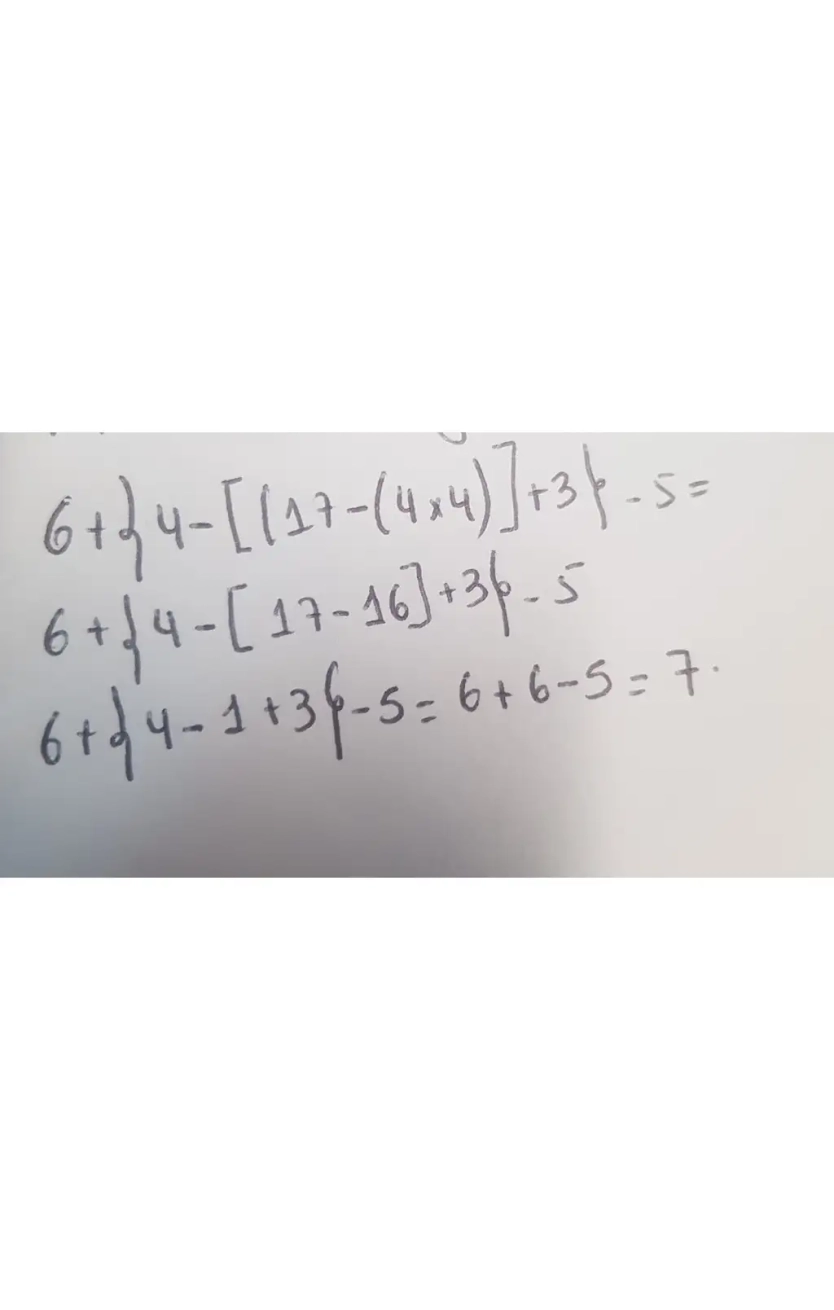 6+{4-[(17-(4×4)]+3}-5=
6+{4-[17-16]+3}-5
6+{4-1+3}-5=6+6-5=7.